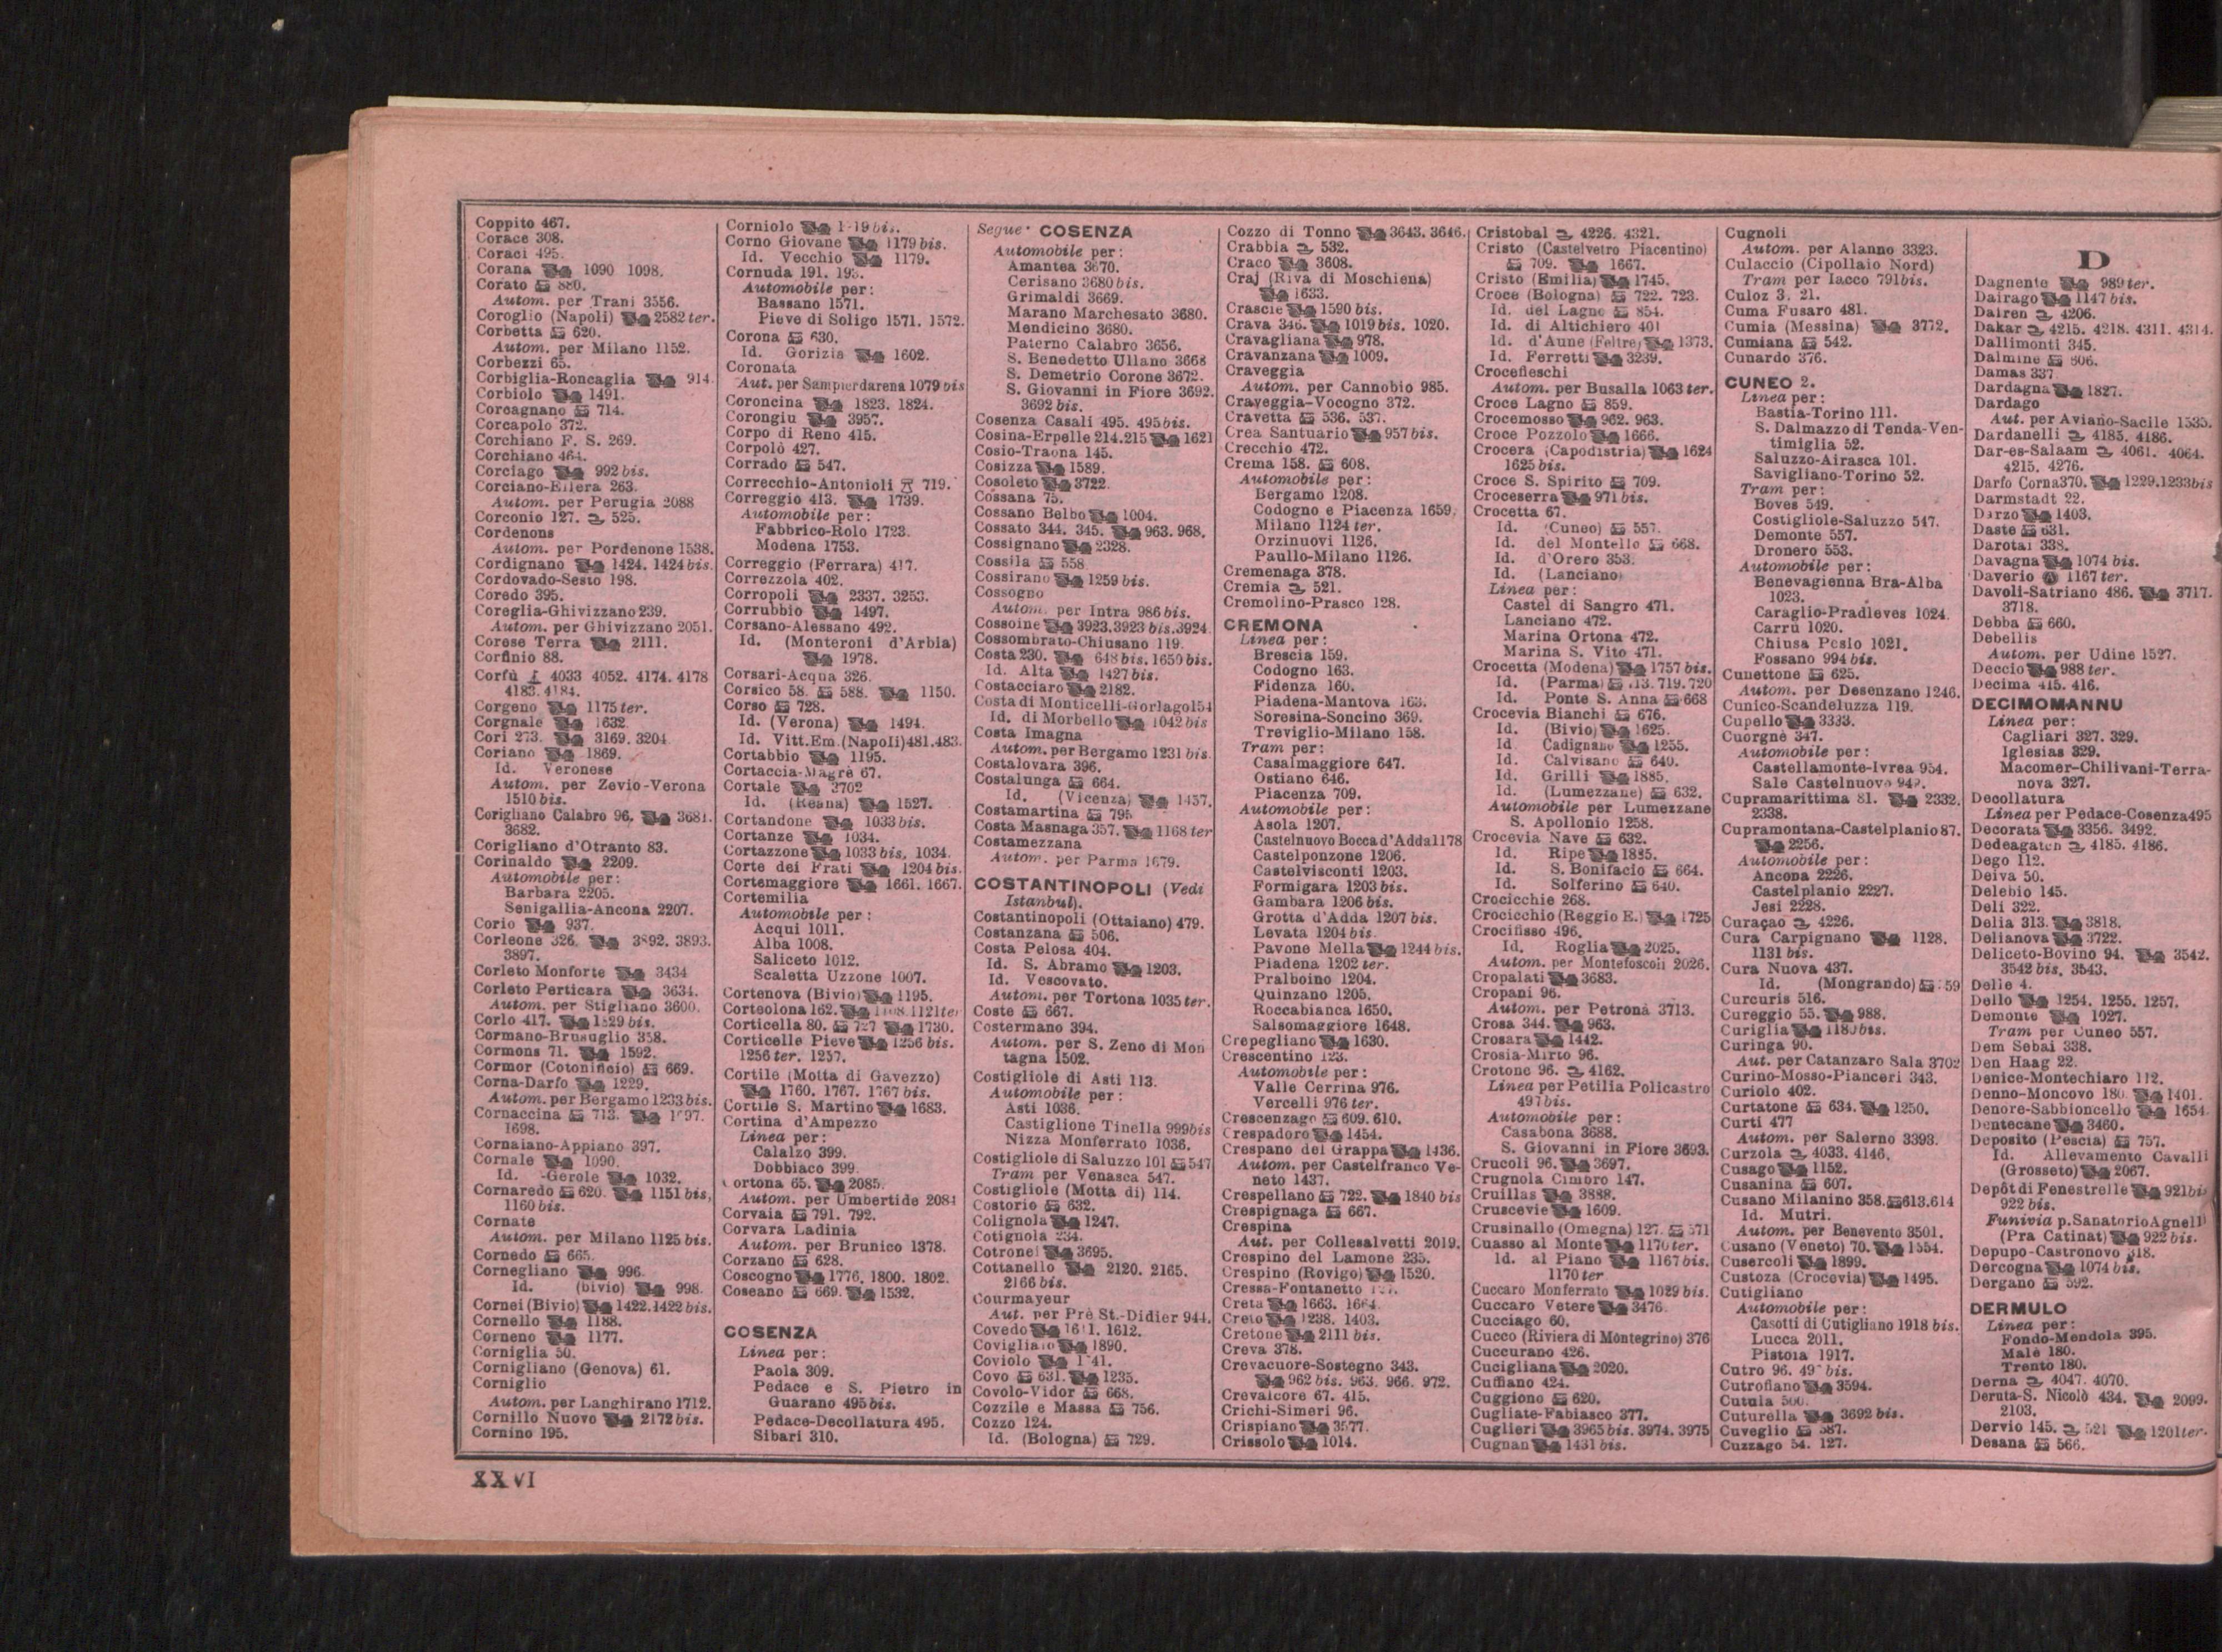 Coppito 467.
Corace 308.
Coraci 495.
Corana 1090 1098.
Corato 880.
Autom. per Trani 3556.
Coroglio (Napoli) 2582 ter.
Corbetta 620.
Autom. per Milano 1152.
Corbezzi 65.
Corbiglia-Roncaglia 914.
Corbiolo 1491.
Corcagnano 714.
Corcapolo 372.
Corchiano F. S. 269.
Corchiano 464.
Corciago 992 bis.
Corciano-Ellera 263.
Autom. per Perugia 2088
Corconio 127. 525.
Cordenons
Autom. per Pordenone 1538.
Cordignano 1424. 1424 bis.
Cordovado-Sesto 198.
Coredo 395.
Coreglia-Ghivizzano 239.
Autom. per Ghivizzano 2051.
Corese Terra 2111.
Corfinio 88.
Corfù 4033 4052. 4174. 4178
4183. 4184.
Corgeno 1175 ter.
Corgnale 1632.
Cori 273. 3169. 3204
Coriano 1869.
Id. Veronese
Autom. per Zevio-Verona
1510 bis.
Corigliano Calabro 96. 3681.
3682.
Corigliano d'Otranto 83.
Corinaldo 2209.
Automobile per:
Barbara 2205.
Senigallia-Ancona 2207.
Corio 937.
Corleone 326. 3892. 3893.
3897.
Corleto Monforte 3434
Corleto Perticara 3634.
Autom. per Stigliano 3600.
Corlo 417. 1829 bis.
Cormano-Brusuglio 358.
Cormons 71. 1592.
Cormor (Cotonificio) 669.
Corna-Darfo 1229.
Autom. per Bergamo 1233 bis.
Cornaccina 713. 1697.
1698.
Cornaiano-Appiano 397.
Cornale 1090.
Id. -Gerole 1032.
Cornaredo 620. 1151 bis,
1160 bis.
Cornate
Autom. per Milano 1125 bis.
Cornedo 665.
Cornegliano 996.
Id. (bivio) 998.
Cornei (Bivio) 1422. 1422 bis.
Cornello 1188.
Corneno 1177.
Corniglia 50.
Cornigliano (Genova) 61.
Corniglio
Autom. per Langhirano 1712.
Cornillo Nuovo 2172 bis.
Cornino 195.
Corniolo bis.
Corno Giovane 1179 bis.
Id. Vecchio 1179.
Cornuda 191. 193.
Automobile per:
Bassano 1571.
Pieve di Soligo 1571. 1572.
Corona 630.
Id. Gorizia 1602.
Coronata
Aut. per Sampierdarena 1079 bis
Coroncina 1823. 1824.
Corongiu 3957.
Corpo di Reno 415.
Corpolò 427.
Corrado 547.
Correcchio-Antonioli 719.
Correggio 413. 1739.
Automobile per:
Fabbrico-Rolo 1723.
Modena 1753.
Correggio (Ferrara) 417.
Correzzola 402.
Corropoli 2337. 3253.
Corrubbio 1497.
Corsano-Alessano 492.
Id. (Monteroni d'Arbia)
1978.
Corsari-Acqua 326.
Corsico 58. 588. 1150.
Corso 728.
Id. (Verona) 1494.
Id. Vitt. Em. (Napoli) 481. 483.
Cortabbio 1195.
Cortaccia-Magrè 67.
Cortale 3702
Id. (Reana) 1527.
Cortandone 1033 bis.
Cortanze 1034.
Cortazzone 1033 bis. 1034.
Corte dei Frati 1204 bis.
Cortemaggiore 1661. 1667.
Cortemilia
Automobile per:
Acqui 1011.
Alba 1008.
Saliceto 1012.
Scaletta Uzzone 1007.
Cortenova (Bivio) 1195.
Corteolona 162. 1121 ter
Corticella 80. 727 1730.
Corticelle Pieve 1256 bis.
1256 ter. 1257.
Cortile (Motta di Gavezzo)
1760. 1767. 1767 bis.
Cortile S. Martino 1683.
Cortina d'Ampezzo
Linea per:
Calalzo 399.
Dobbiaco 399.
Cortona 65. 2085.
Autom. per Umbertide 2081
Corvaia 791. 792.
Corvara Ladinia
Autom. per Brunico 1378.
Corzano 628.
Coscogno 1776. 1800. 1802.
Coseano 669. 1532.
COSENZA
Linea per:
Paola 309.
Pedace e S. Pietro in
Guarano 495 bis.
Pedace-Decollatura 495.
Sibari 310.
Segue: COSENZA
Automobile per:
Amantea 3670.
Cerisano 3680 bis.
Grimaldi 3669.
Marano Marchesato 3680.
Mendicino 3680.
Paterno Calabro 3656.
S. Benedetto Ullano 3668
S. Demetrio Corone 3672.
S. Giovanni in Fiore 3692.
3692 bis.
Cosenza Casali 495. 495 bis.
Cosina-Erpelle 214. 215 1621
Cosio-Traona 145.
Cosizza 1589.
Cosoleto 3722.
Cossana 75.
Cossano Belbo 1004.
Cossato 344. 345. 963. 968.
Cossignano 2328.
Cossila 558
Cossirano 1259 bis.
Cossogno
Autom. per Intra 986 bis.
Cossoine 3923. 3923 bis. 3924
Cossombrato-Chiusano 119.
Costa 230. 648 bis. 1650 bis.
Id. Alta 1427 bis.
Costacciaro 2182.
Costa di Monticelli-Gorlago 154
Id. di Morbello 1042 bis
Costa Imagna
Autom. per Bergamo 1231 bis.
Costalovara 396.
Costalunga 664.
Id. (Vicenza) 1457.
Costamartina 795
Costa Masnaga 357. 1168 ter
Costamezzana
Autom. per Parma 1679.
COSTANTINOPOLI (Vedi
Istanbul).
Costantinopoli (Ottaiano) 479.
Costanzana 506.
Costa Pelosa 404.
Id. S. Abramo 1203.
Id. Vescovato.
Autom. per Tortona 1035 ter.
Coste 667.
Costermano 394.
Autom. per S. Zeno di Mon
tagna 1502.
Costigliole di Asti 113.
Automobile per:
Asti 1036.
Castiglione Tinella 999 bis
Nizza Monferrato 1036.
Costigliole di Saluzzo 101 547
Tram per Venasca 547.
Costigliole (Motta di) 114.
Costorio 632.
Cotignola 1247.
Cotignola 234.
Cotronei 3695.
Cottanello 2120. 2165.
2166 bis.
Courmayeur
Aut. per Pré St.-Didier 944.
Covedo 1611. 1612.
Covigliaio 1890.
Coviolo
Covo 631. 1235.
Covolo-Vidor 668.
Cozzile e Massa 756.
Cozzo 124.
Id. (Bologna) 729.
Cozzo di Tonno 3643. 3646.
Crabbia 532.
Craco 3608.
Craj (Riva di Moschiena)
1633.
Crascie 1590 bis.
Crava 346. 1019 bis. 1020.
Cravagliana 978.
Cravanzana 1009.
Craveggia
Autom. per Cannobio 985.
Craveggia-Vocogno 372.
Cravetta 536. 537.
Crea Santuario 957 bis.
Crecchio 472.
Crema 158. 608.
Automobile per:
Bergamo 1208.
Codogno e Piacenza 1659.
Milano 1124 ter.
Orzinuovi 1126.
Paullo-Milano 1126.
Cremenaga 378.
Cremia 521.
Cremolino-Prasco 128.
CREMONA
Linea per:
Brescia 159.
Codogno 163.
Fidenza 160.
Piadena-Mantova 163.
Soresina-Soncino 369.
Treviglio-Milano 158.
Tram per:
Casalmaggiore 647.
Ostiano 646.
Piacenza 709.
Automobile per:
Asola 1207.
Castelnuovo Bocca d'Adda 1178
Castelponzone 1206.
Castelvisconti 1203.
Formigara 1203 bis.
Gambara 1206 bis.
Grotta d'Adda 1207 bis.
Levata 1204 bis.
Pavone Mella 1244 bis.
Piadena 1202 ter.
Pralboino 1204.
Quinzano 1205.
Roccabianca 1650.
Salsomaggiore 1648.
Crepegliano 1630.
Crescentino 123.
Automobile per:
Valle Cerrina 976.
Vercelli 976 ter.
Crescenzago 609. 610.
Crespadoro 1454.
Crespano del Grappa 1436.
Autom. per Castelfranco Ve-
neto 1437.
Crespellano 722. 1840 bis
Crespignaga 667.
Crespina
Aut. per Collesalvetti 2019.
Crespino del Lamone 235.
Crespino (Rovigo) 1520.
Cressa-Fontanetto
Creta 1663. 1664.
Creto 1238. 1403.
Cretone 2111 bis.
Creva 378.
Crevacuore-Sostegno 343.
962 bis. 963. 966. 972.
Crevalcore 67. 415.
Crichi-Simeri 96.
Crispiano 3577.
Crissolo 1014.
Cristobal 4226. 4321.
Cristo (Castelvetro Piacentino)
709. 1667.
Cristo (Emilia) 1745.
Croce (Bologna) 722. 723.
Id. del Lagno 854.
Id. di Altichiero 401
Id. d'Aune (Feltre) 1373.
Id. Ferretti 3239.
Crocefieschi
Autom. per Busalla 1063 ter.
Croce Lagno 859.
Crocemosso 962. 963.
Croce Pozzolo 1666.
Crocera (Capodistria) 1624
1625 bis.
Croce S. Spirito 709.
Croceserra 971 bis.
Crocetta 67.
Id. (Cuneo) 557.
Id. del Montello 668.
Id. d'Orero 353.
Id. (Lanciano)
Linea per:
Castel di Sangro 471.
Lanciano 472.
Marina Ortona 472.
Marina S. Vito 471.
Crocetta (Modena) 1757 bis.
Id. (Parma) 713. 719. 720
Id. Ponte S. Anna 668
Crocevia Bianchi 676.
Id. (Bivio) 1625.
Id Cadignano 1255.
Id. Calvisano 640.
Id. Grilli 1885.
Id. (Lumezzane) 632.
Automobile per Lumezzane
S. Apollonio 1258.
Crocevia Nave 632.
Id. Ripe 1885.
Id. S. Bonifacio 664.
Id. Solferino 640.
Crocicchie 268.
Crocicchio (Reggio E.) 1725
Crocifisso 496.
Id. Roglia 2025.
Autom. per Montefoscoli 2026.
Cropalati 3683.
Cropani 96.
Autom. per Petronà 3713.
Crosa 344. 963.
Crosara 1442.
Crosia-Mirto 96.
Crotone 96. 4162.
Linea per Petilia Policastro
497 bis.
Automobile per:
Casabona 3688.
S. Giovanni in Fiore 3693.
Crucoli 96. 3697.
Crugnola Cimbro 147.
Cruillas 3888.
Cruscevie 1609.
Crusinallo (Omegna) 127. 571
Cuasso al Monte 1170 ter.
Id. al Piano 1167 bis.
1170 ter
Cuccaro Monferrato 1029 bis.
Cuccaro Vetere 3476.
Cucciago 60.
Cucco (Riviera di Montegrino) 376
Cuccurano 426.
Cucigliana 2020.
Cuffiano 424.
Cuggiono 620.
Cugliate-Fabiasco 377.
Cuglieri 3965 bis. 3974. 3975
Cugnan 1431 bis.
Cugnoli
Autom. per Alanno 3323.
Culaccio (Cipollaio Nord)
Tram per Iacco 791 bis.
Culoz 3. 21.
Cuma Fusaro 481.
Cumia (Messina) 3772.
Cumiana 542.
Cunardo 376.
CUNEO 2.
Linea per:
Bastia-Torino 111.
S. Dalmazzo di Tenda-Ven-
timiglia 52.
Saluzzo-Airasca 101.
Savigliano-Torino 52.
Tram per:
Boves 549.
Costigliole-Saluzzo 547.
Demonte 557.
Dronero 553.
Automobile per:
Benevagienna Bra-Alba
1023.
Caraglio-Pradleves 1024.
Carrù 1020.
Chiusa Pesio 1021.
Fossano 994 bis.
Cunettone 625.
Autom. per Desenzano 1246.
Cunico-Scandeluzza 119.
Cupello 3333.
Cuorgnè 347.
Automobile per:
Castellamonte-Ivrea 954.
Sale Castelnuovo 949.
Cupramarittima 81. 2332.
2338.
Cupramontana-Castelplanio 87.
2256.
Automobile per:
Ancona 2226.
Castelplanio 2227.
Jesi 2228.
Curaçao 4226.
Cura Carpignano 1128.
1131 bis.
Cura Nuova 437.
Id. (Mongrando) 559
Curcuris 516.
Cureggio 55. 988.
Curiglia 1180 bis.
Curinga 90.
Aut. per Catanzaro Sala 3702
Curino-Mosso-Pianceri 343.
Curiolo 402.
Curtatone 634. 1250.
Curti 477
Autom. per Salerno 3393.
Curzola 4033. 4146.
Cusago 1152.
Cusanina 607.
Cusano Milanino 358. 613. 614
Id. Mutri.
Autom. per Benevento 3501.
Cusano (Veneto) 70. 1554.
Cusercoli 1899.
Custoza (Crocevia) 1495.
Cutigliano
Automobile per:
Casotti di Cutigliano 1918 bis.
Lucca 2011.
Pistoia 1917.
Cutro 96. 497 bis.
Cutrofiano 3594.
Cutula 500.
Cuturella 3692 bis.
Cuveglio 587.
Cuzzago 54. 127.
D
Dagnente 989 ter.
Dairago 1147 bis.
Dairen 4206.
Dakar 4215. 4218. 4311. 4314.
Dallimonti 345.
Dalmine 606.
Damas 337.
Dardagna 1827.
Dardago
Aut. per Aviano-Sacile 1535.
Dardanelli 4185. 4186.
Dar-es-Salaam 4061. 4064.
4215. 4276.
Darfo Corna 370. 1229. 1233 bis
Darmstadt 22.
Darzo 1403.
Daste 631.
Darotai 338.
Davagna 1074 bis.
Daverio 1167 ter.
Davoli-Satriano 486. 3717.
3718.
Debba 660.
Debellis
Autom. per Udine 1527.
Deccio 988 ter.
Decima 415. 416.
DECIMOMANNU
Linea per:
Cagliari 327. 329.
Iglesias 329.
Macomer-Chilivani-Terra-
nova 327.
Decollatura
Linea per Pedace-Cosenza 495
Decorata 3356. 3492.
Dedeagatch 4185. 4186.
Dego 112.
Deiva 50.
Delebio 145.
Deli 322.
Delia 313. 3818.
Delianova 3722.
Deliceto-Bovino 94. 3542.
3542 bis, 3543.
Delle 4.
Dello 1254. 1255. 1257.
Demonte 1027.
Tram per Cuneo 557.
Dem Sebai 338.
Den Haag 22.
Denice-Montechiaro 112.
Denno-Moncovo 180. 1401.
Denore-Sabbioncello 1654.
Dentecane 3460.
Deposito (Pescia) 757.
Id. Allevamento Cavalli
(Grosseto) 2067.
Depôt di Fenestrelle 921 bis
922 bis.
Funivia p. Sanatorio Agnelli
(Pra Catinat) 922 bis.
Depupo-Castronovo 318.
Dercogna 1074 bis.
Dergano 592.
DERMULO
Linea per:
Fondo-Mendola 395.
Malè 180.
Trento 180.
Derna 4047. 4070.
Deruta-S. Nicolò 434. 2099.
2103.
Dervio 145. 521 1201 ter.
Desana 566.
XXVI